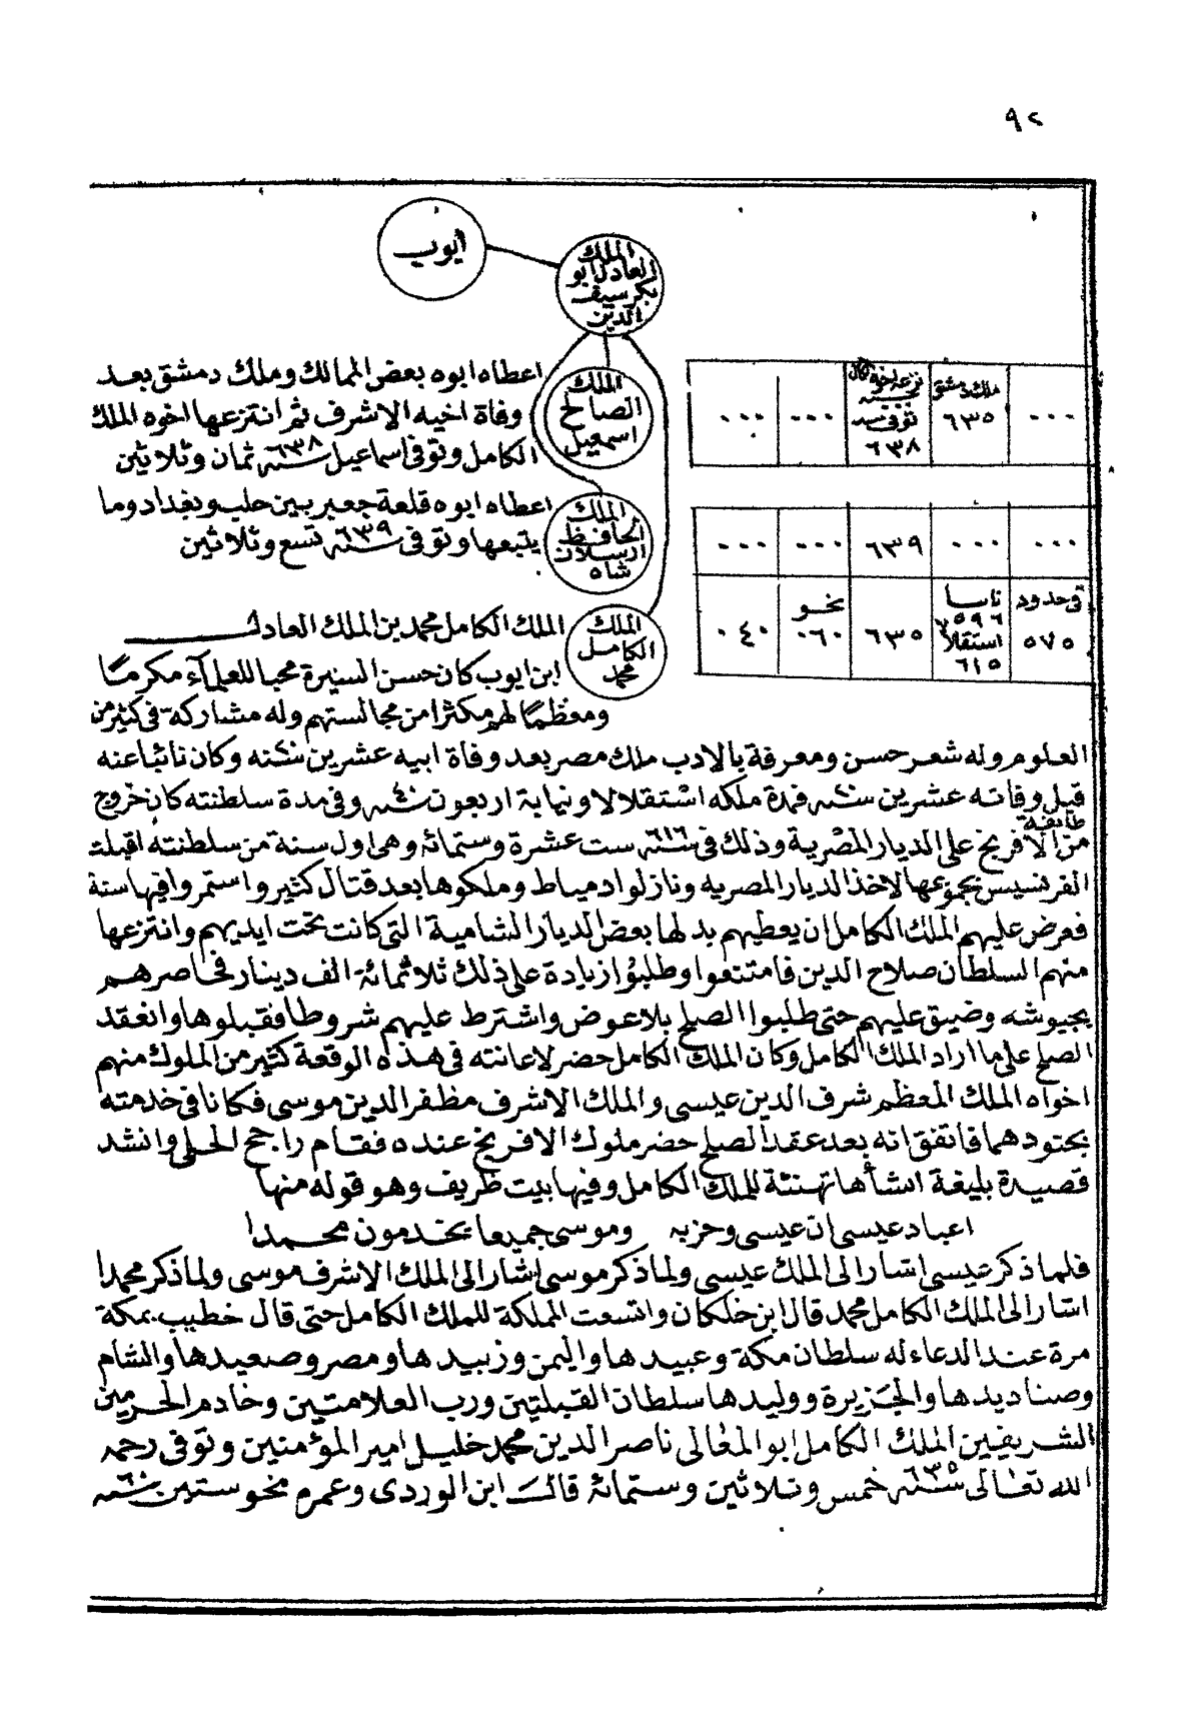 ٩٢
ايوب
الملك
العادل ابو
بكر سيف
الدين
الملك
الصالح
اسمعيل
اعطاه ابوه بعض الممالك وملك دمشق بعد
وفاة اخيه الاشرف ثم انتزعها اخوه الملك
الكامل وتوفى اسماعيل سنة ٦٣٨ ثمان وثلاثين
... ملك دمشق ٦٣٥ توفى سنة ٦٣٨ ... ...
الملك
الحافظ
ارسلان
شاه
اعطاه ابوه قلعة جعبر بين حلب وبغداد وما
يتبعها وتوفى سنة ٦٣٩ تسع وثلاثين
... ... ٦٣٩ ... ...
فى حدود ٥٧٥ نايبا ٥٩٦ استقلالا ٦١٥ ٦٣٥ نحو ٠٦٠ ٠٤٠
الملك
الكامل
محمد
الملك الكامل محمد بن الملك العادل
ابن ايوب كان حسن السيرة محبا للعلمآء مكرمًا
ومعظمًا لهم مكثرا من مجالستهم وله مشاركة فى كثير من
العلوم وله شعر حسن ومعرفة بالادب ملك مصر بعد وفاة ابيه عشرين سنه وكان نائبا عنه
قبل وفاته عشرين سنه فمدة ملكه استقلالا ونيابة اربعون سنه ٤٠ وفى مدة سلطنته كان خروج
طايفة
من الافرنج على الديار المصرية وذلك فى سنه ٦١٦ ست عشرة وستمائه وهى اول سنة من سلطنته اقبلت
الفرنسيس بجموعها لاخذ الديار المصريه ونازلوا دمياط وملكوها بعد قتال كثير واستمروا فيها سنة
فعرض عليهم الملك الكامل ان يعطيهم بدلها بعض الديار الشامية التى كانت تحت ايديهم وانتزعها
منهم السلطان صلاح الدين فامتنعوا وطلبوا زيادة على ذلك ثلاثمائة الف دينار فحاصرهم
بجيوشه وضيق عليهم حتى طلبوا الصلح بلا عوض واشترط عليهم شروطا فقبلوها وانعقد
الصلح على ما اراد الملك الكامل وكان الملك الكامل حضر لاعانته فى هذه الوقعة كثير من الملوك منهم
اخواه الملك المعظم شرف الدين عيسى والملك الاشرف مظفر الدين موسى فكانا فى خدمته
بجنودهما فاتفق انه بعد عقد الصلح حضر ملوك الافرنج عنده فقام راجح الحلى وانشد
قصيدة بليغة انشأها تهنئة للملك الكامل وفيها بيت ظريف وهو قوله منها
اعباد عيسى ان عيسى وحزبه وموسى جميعا يخدمون محمدا
فلما ذكر عيسى اشار الى الملك عيسى ولما ذكر موسى اشار الى الملك الاشرف موسى ولما ذكر محمدا
اشار الى الملك الكامل محمد قال ابن خلكان واتسعت المملكة للملك الكامل حتى قال خطيب بمكة
مرة عند الدعاء له سلطان مكة وعبيدها واليمن وزبيدها ومصر وصعيدها والشام
وصناديدها والجزيرة ووليدها سلطان القبلتين ورب العلامتين وخادم الحرمين
الشريفين الملك الكامل ابو المعالى ناصر الدين محمد خليل امير المؤمنين وتوفى رحمه
الله تعالى سنه ٦٣٥ خمس وثلاثين وستمائة قال ابن الوردى وعمره نحو ستين سنه ٦٠